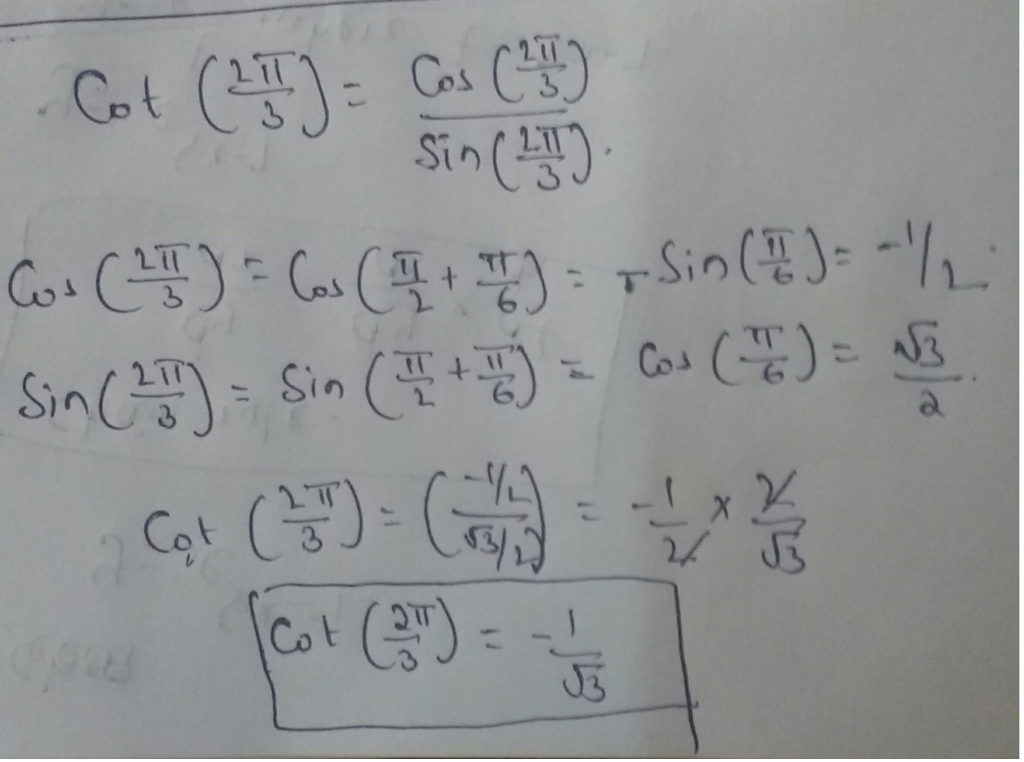 Cot (2π/3) = Cos (2π/3) / Sin (2π/3).
Cos (2π/3) = Cos (π/2 + π/6) = - Sin (π/6) = -1/2.
Sin (2π/3) = Sin (π/2 + π/6) = Cos (π/6) = √3/2.
Cot (2π/3) = (-1/2 / √3/2) = -1/2 × 2/√3
Cot (2π/3) = -1/√3